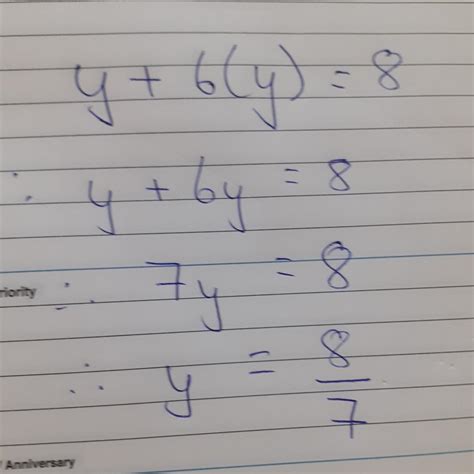 y + 6(y) = 8
∴ y + 6y = 8
riority
∴ 7y = 8
∴ y = 8/7
Anniversary